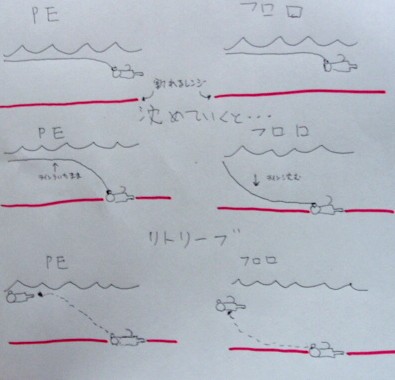 PE
フロロ
釣れるレンジ
沈めていくと…
PE
フロロ
リトリーブ
PE
フロロ